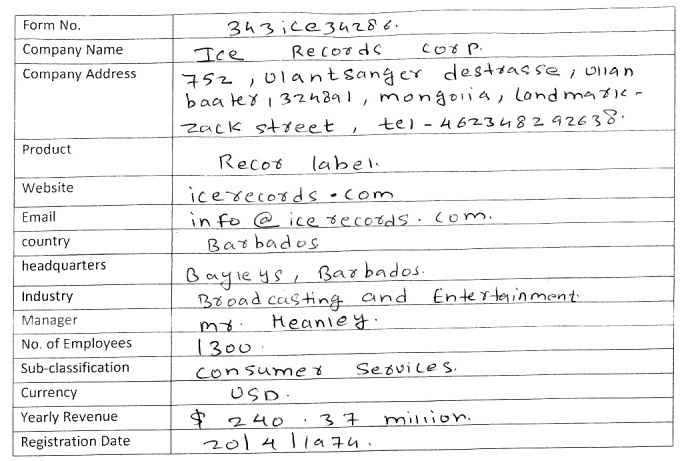 Form No. 343ice34286.
Company Name Ice Records corp.
Company Address 752, Ulantsanger destrasse, Ulan
baater, 324891, mongolia, Landmark-
zack street, tel-4623482 92638.
Product Recor label.
Website icerecords.com
Email info@icerecords.com.
country Barbados
headquarters Bayleys, Barbados.
Industry Broadcasting and Entertainment.
Manager mr. Heanley.
No. of Employees 1300.
Sub-classification consumer Services.
Currency USD.
Yearly Revenue $ 240.37 million.
Registration Date 20/4/1974.